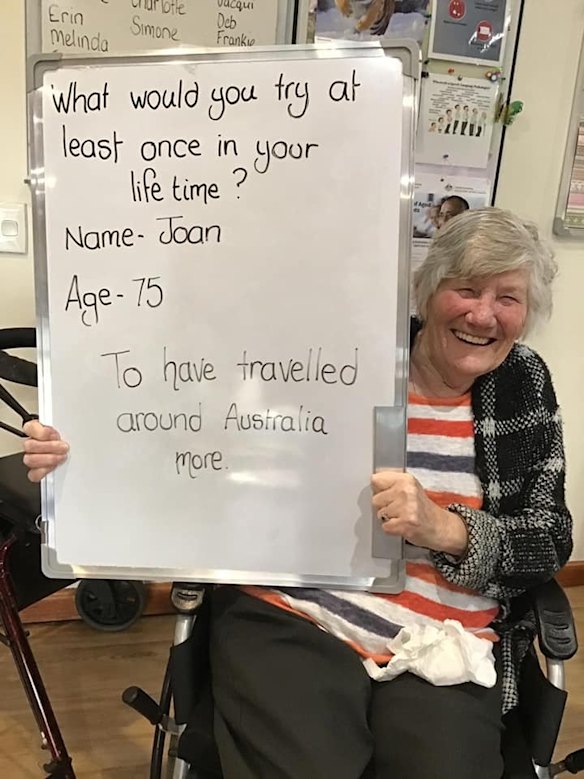 Erin
Melinda
Charlotte
Simone
Jacqui
Deb
Frankie
What would you try at
least once in your
life time?
Name- Joan
Age- 75
To have travelled
around Australia
more.